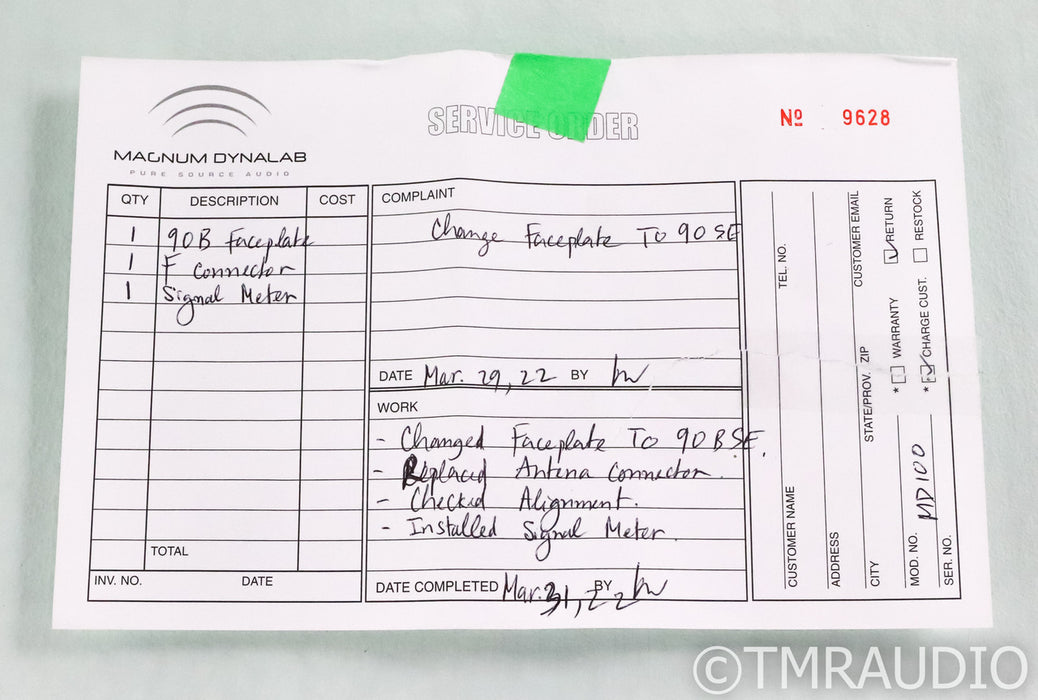 MAGNUM DYNALAB
PURE SOURCE AUDIO
SERVICE ORDER
Nº 9628
QTY DESCRIPTION COST
1 90B Faceplate
1 F Connector
1 Signal Meter
TOTAL
INV. NO. DATE
COMPLAINT
Change Faceplate To 90 SE
DATE Mar. 29, 22 BY
WORK
- Changed Faceplate To 90B SE.
- Replaced Antena Connector.
- Checked Alignment.
- Installed Signal Meter.
DATE COMPLETED Mar. 31, 22 BY
CUSTOMER NAME TEL. NO.
ADDRESS
CUSTOMER EMAIL
CITY STATE/PROV. ZIP
MOD. NO. MD100
* WARRANTY RETURN
* CHARGE CUST. RESTOCK
SER. NO.
©TMRAUDIO